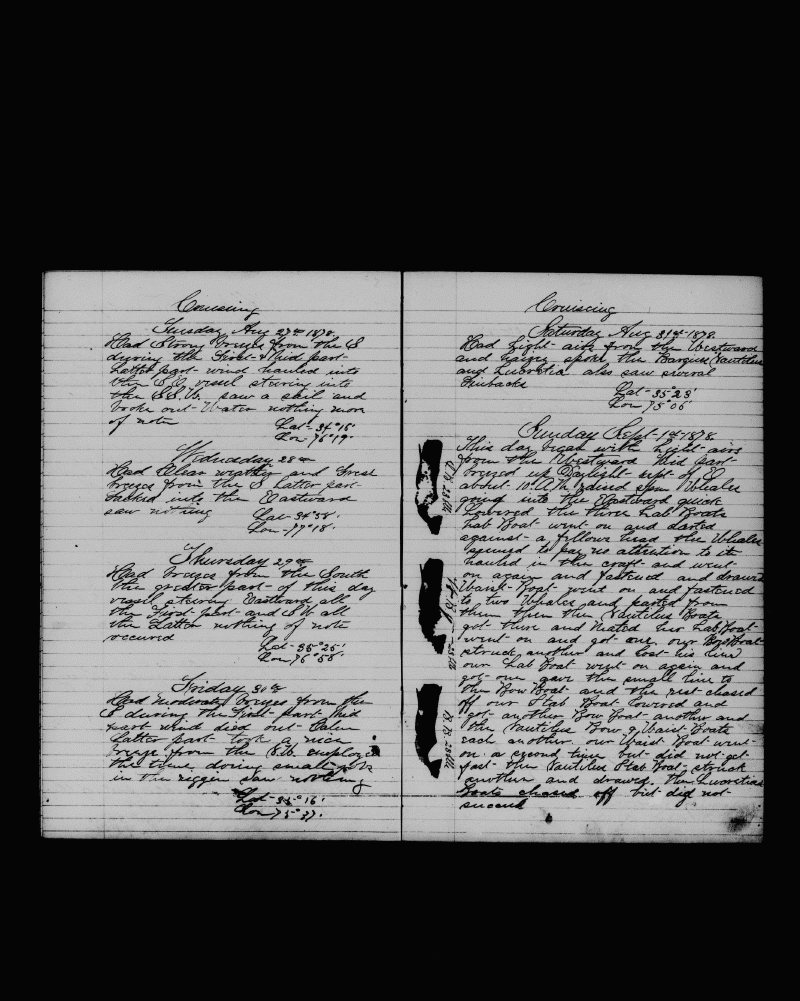 Cruising
Tuesday Aug 27th 1878
Had Strong breezes from the S
during the First & Mid part
Latter part wind hauled into
the vessel steering into
the saw a sail and
broke out Water nothing more
of note
Lat- 34°15'
Lon- 76°19'
Wednesday 28th
Had Clear weather and fresh
breezes from the S Latter part
backed into the Eastward
saw nothing
Lat- 34°58'
Lon- 77°18'
Thursday 29th
Had breezes from the South
the greater part of this day
vessel steering Eastward all
the First part and all
the Latter nothing of note
occured
Lat- 35°25'
Lon- 76°58'
Friday 30th
Had moderate breezes from the
S during the First part Mid
part wind died out Calm
Latter part took a nice
breeze from the employed
the time doing small jobs
in the rigger saw nothing
Lat- 16'
Lon 75°37'
Cruiscing
Saturday Aug 31st 1878
Had Light airs from the Westward
and hazey spoke the Barques Nautilus
and Lucretia also saw several
finbacks
Lat- 35°23'
Lon 75°06'
Sunday Sept- 1st 1878
This day begin with Light airs
from the Westward Mid part
breezed up Daylight
about 10 A.M. raised spm Whales
going into the Eastward quick
Lowered the three Lab Boats
Lab Boat went on and darted
against a fellows head the Whales
seemed to pay no attention to it
hauled in the craft and went
on again and fastened and drawed
Waist Boat went on and fastened
to two Whales and parted from
them then the Nautilus Boats
got there and Mated her Lab Boat
went on and got one our Bow Boat
struck another and lost his line
our Lab Boat went on again and
got one gave the small line to
the Bow Boat and the rest chased
off our Stab Boat Lowered and
got another Bow Boat another and
the Nautilus Bow & Waist Boats
each another our Waist Boat went
on a second time but did not get
fast the Nautilus Stab Boat struck
another and drawed the Lucretias
Boats chased off but did not
succeed